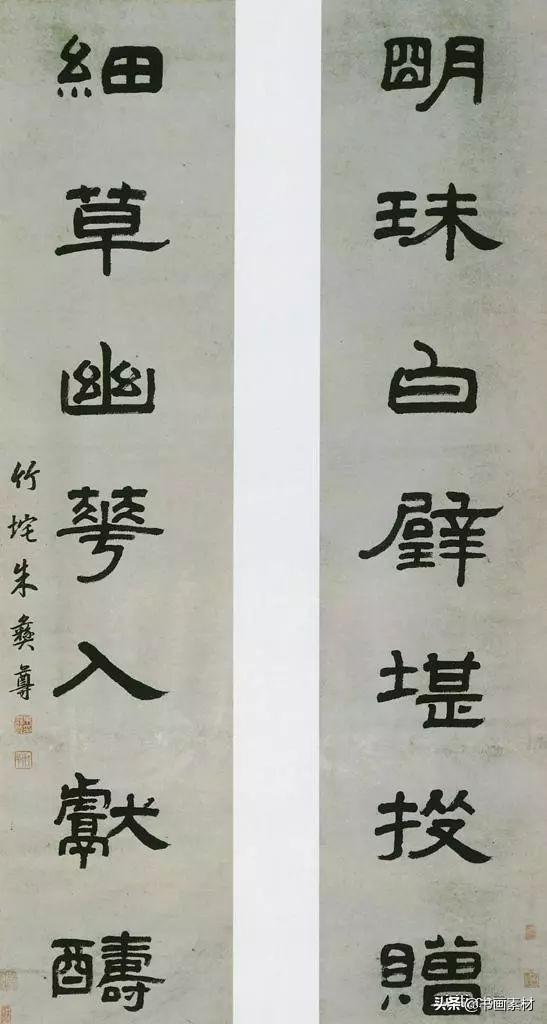 朙珠白璧堪投贈
細草幽華入獻醻
竹垞朱彝尊
头条 @书画素材